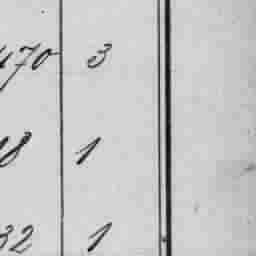 470 3
18 1
32 1